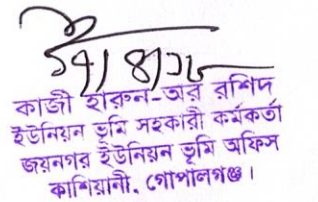 ১৭/৪/১৮
কাজী হারুন-অর রশিদ
ইউনিয়ন ভূমি সহকারী কর্মকর্তা
জয়নগর ইউনিয়ন ভূমি অফিস
কাশিয়ানী, গোপালগঞ্জ।